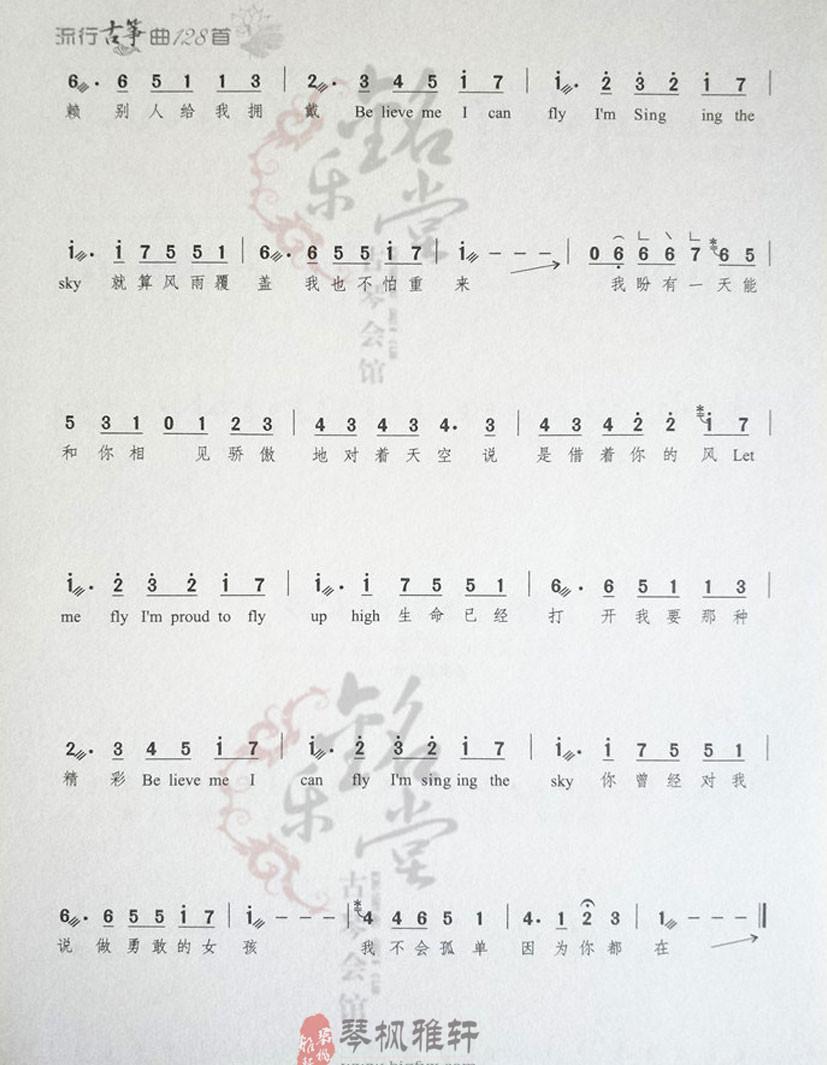 流行古筝曲128首
6. 6 5 1 1 3 | 2. 3 4 5 i 7 | i. 2 3 2 i 7 |
赖 别人给我拥 戴 Be lieve me I can fly I'm Sing ing the
i. i 7 5 5 1 | 6. 6 5 5 i 7 | i - - - | 0 6 6 6 7 6 5
sky 就算风雨覆 盖 我也不怕重 来 我盼有一天能
5 3 1 0 1 2 3 | 4 3 4 3 4. 3 | 4 3 4 2 2 i 7 |
和你相 见骄傲 地对着天空说 是借着你的风Let
i. 2 3 2 i 7 | i. i 7 5 5 1 | 6. 6 5 1 1 3 |
me fly I'm proud to fly up high 生命已经 打 开我要那种
2. 3 4 5 i 7 | i. 2 3 2 i 7 | i. i 7 5 5 1 |
精 彩 Be lieve me I can fly I'm sing ing the sky 你曾经对我
6. 6 5 5 i 7 | i - - - | 4 4 6 5 1 | 4. 1 2 3 | 1 - - - ‖
说 做勇敢的女 孩 我不会孤单 因为你都 在
铭乐堂
古琴会馆
铭乐堂
古琴会馆
琴枫雅轩